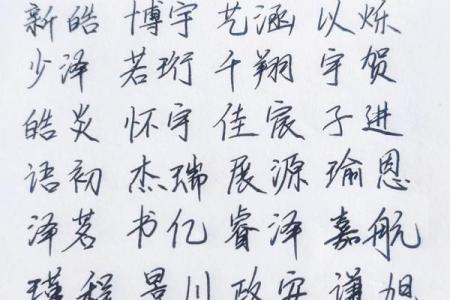 新皓 博宇 艺涵 以烁
少泽 若珩 千翔 宇贺
皓炎 怀宇 佳宸 子进
语初 杰瑞 展源 瑜恩
泽茗 书亿 睿泽 嘉航
瑾程 景川 政安 谦旭